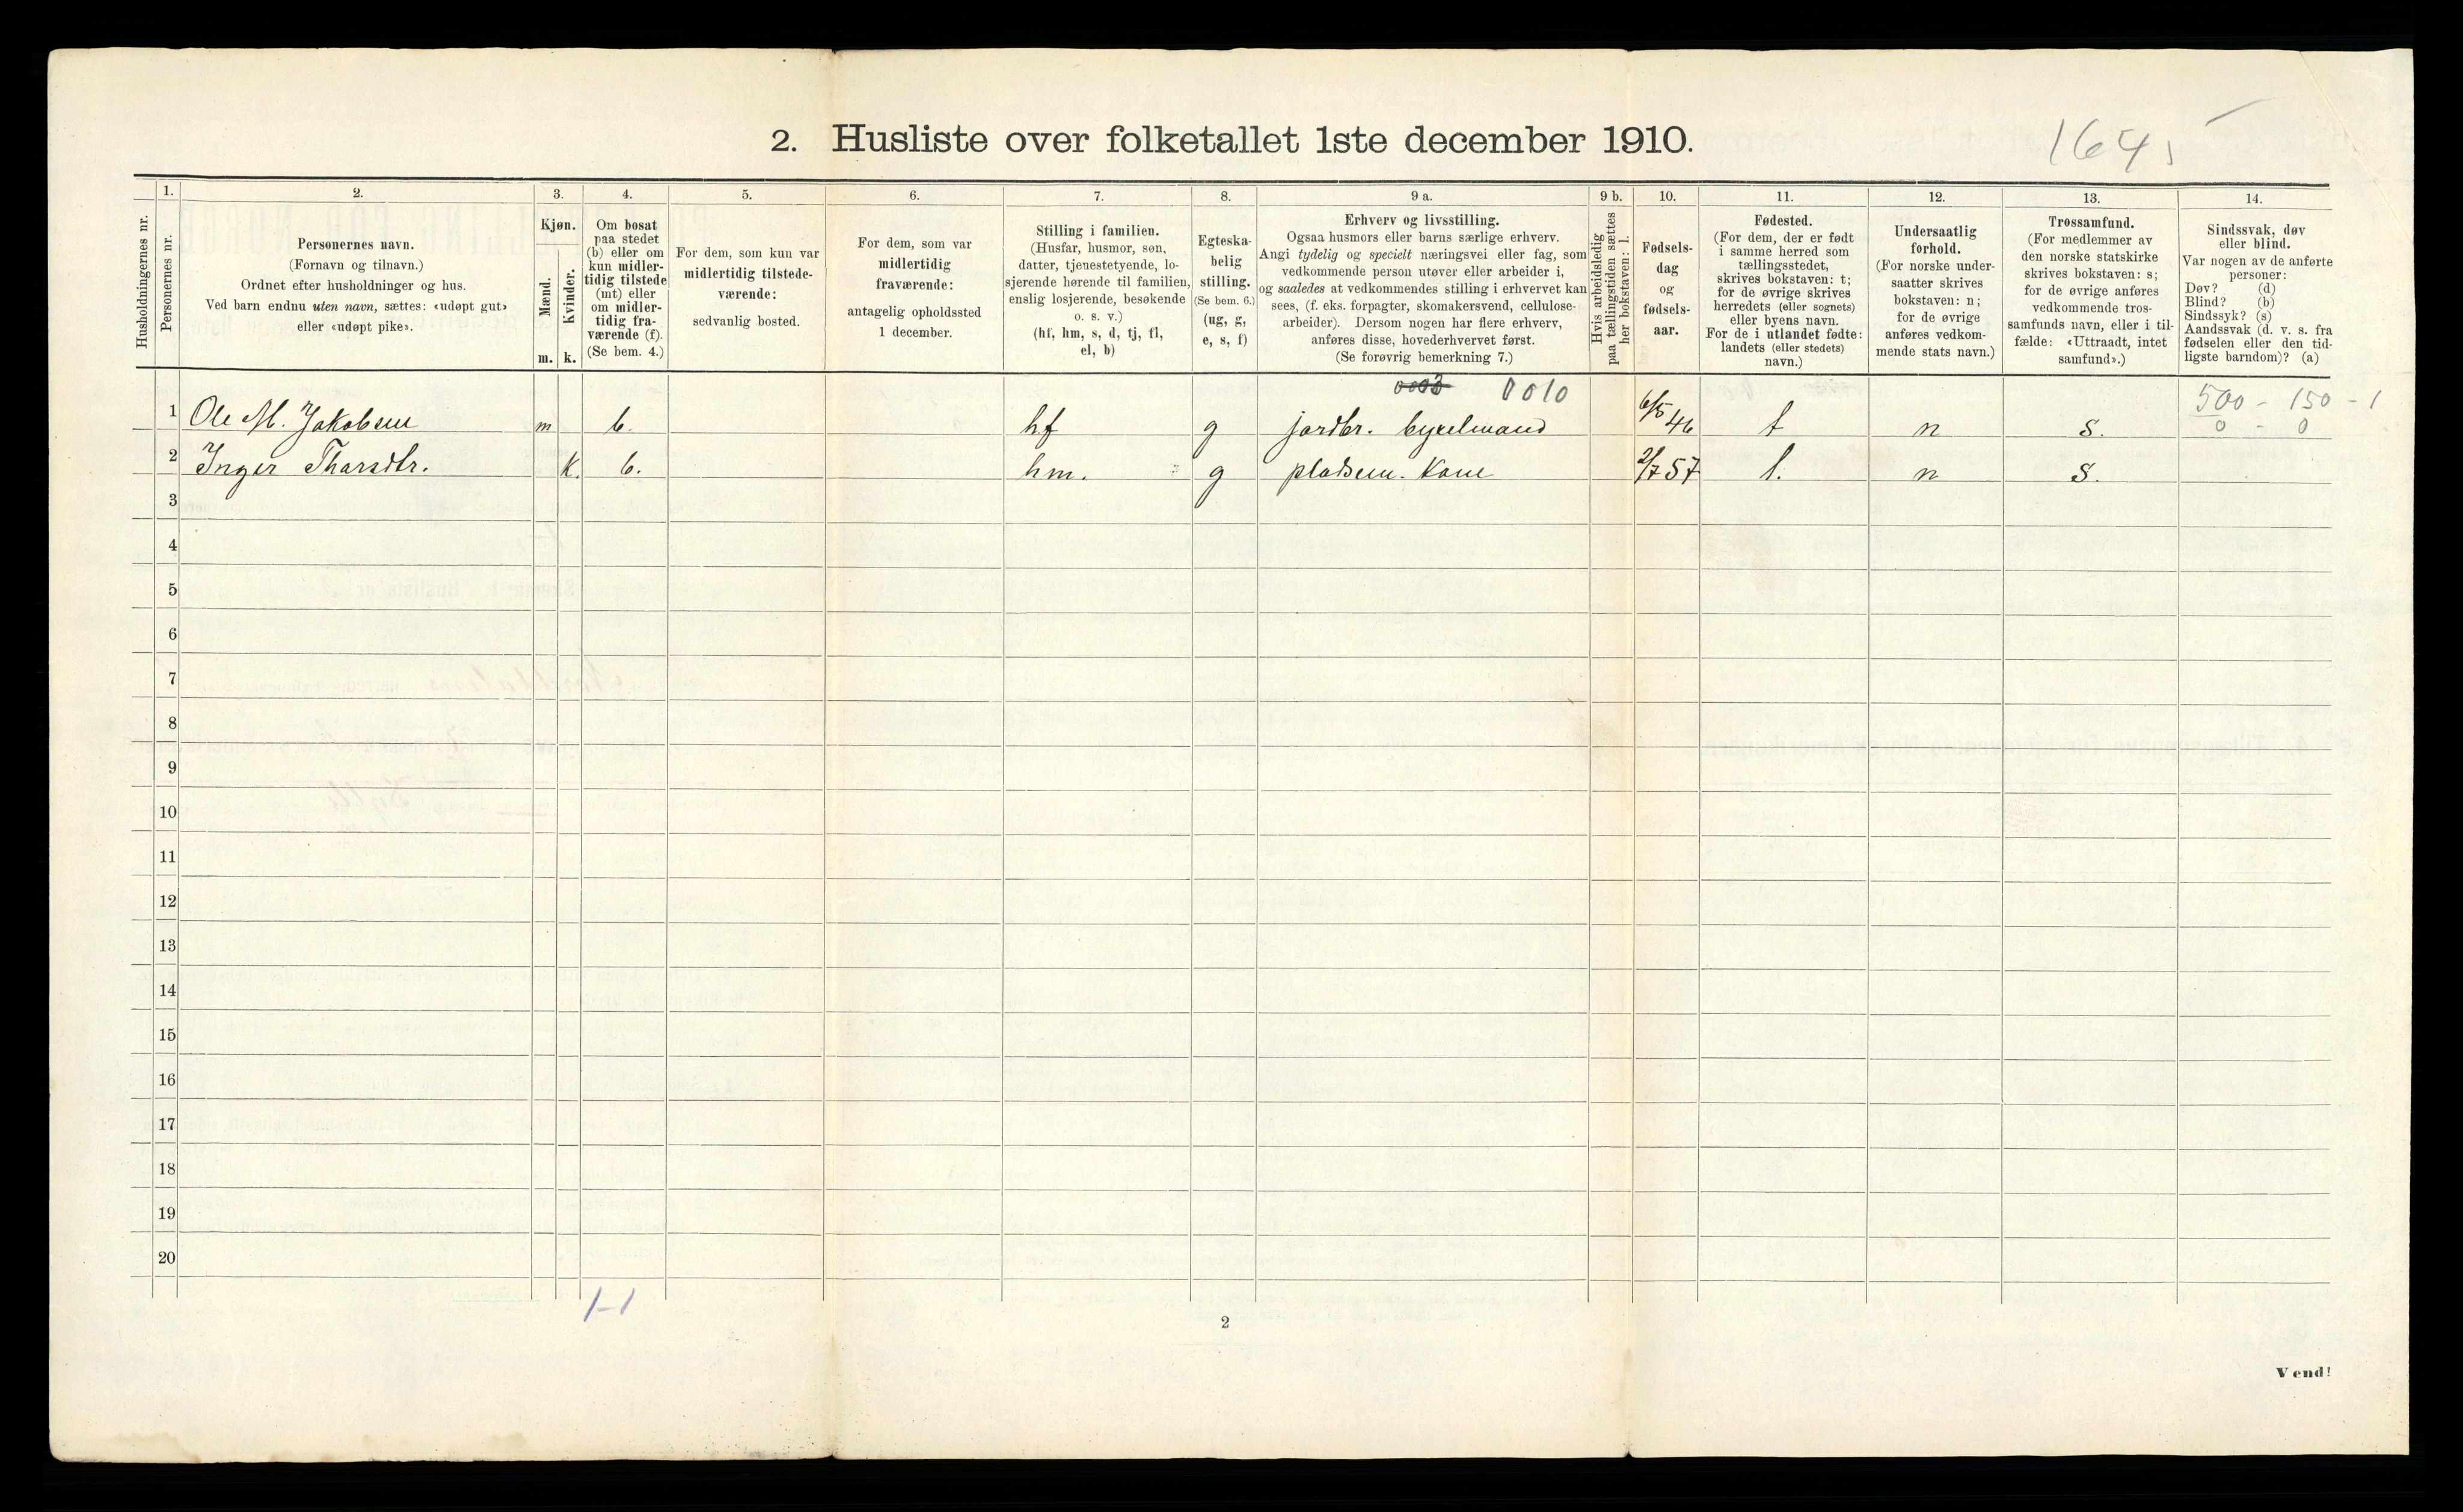 2. Husliste over folketallet 1ste december 1910.
1645
1.
2.
3.
4.
5.
6.
7.
8.
9 a.
9 b.
10.
11.
12.
13.
14.
Husholdningernes nr.
Personernes nr.
Personernes navn.
(Fornavn og tilnavn.)
Ordnet efter husholdninger og hus.
Ved barn endnu uten navn, sættes: «udøpt gut»
eller «udøpt pike».
Kjøn.
Mænd.
Kvinder.
m.
k.
Om bosat
paa stedet
(b) eller om
kun midler-
tidig tilstede
(mt) eller
om midler-
tidig fra-
værende (f).
(Se bem. 4.)
For dem, som kun var
midlertidig tilstede-
værende:
sedvanlig bosted.
For dem, som var
midlertidig
fraværende:
antagelig opholdssted
1 december.
Stilling i familien.
(Husfar, husmor, søn,
datter, tjenestetyende, lo-
sjerende hørende til familien,
enslig losjerende, besøkende
o. s. v.)
(hf, hm, s, d, tj, fl,
el, b)
Egteska-
belig
stilling.
(Se bem. 6.)
(ug, g,
e, s, f)
Erhverv og livsstilling.
Ogsaa husmors eller barns særlige erhverv.
Angi tydelig og specielt næringsvei eller fag, som
vedkommende person utøver eller arbeider i,
og saaledes at vedkommendes stilling i erhvervet kan
sees, (f. eks. forpagter, skomakersvend, cellulose-
arbeider). Dersom nogen har flere erhverv,
anføres disse, hovederhvervet først.
(Se forøvrig bemerkning 7.)
Hvis arbeidsledig
paa tællingstiden sættes
her bokstaven: l.
Fødsels-
dag
og
fødsels-
aar.
Fødested.
(For dem, der er født
i samme herred som
tællingsstedet,
skrives bokstaven: t;
for de øvrige skrives
herredets (eller sognets)
eller byens navn.
For de i utlandet fødte:
landets (eller stedets)
navn.)
Undersaatlig
forhold.
(For norske under-
saatter skrives
bokstaven: n;
for de øvrige
anføres vedkom-
mende stats navn.)
Trossamfund.
(For medlemmer av
den norske statskirke
skrives bokstaven: s;
for de øvrige anføres
vedkommende tros-
samfunds navn, eller i til-
fælde: «Uttraadt, intet
samfund».)
Sindssvak, døv
eller blind.
Var nogen av de anførte
personer:
Døv? (d)
Blind? (b)
Sindssyk? (s)
Aandssvak (d. v. s. fra
fødselen eller den tid-
ligste barndom)? (a)
0010
500 - 150 - 1
0 - 0
1 Ole M. Jakobsen m b. hf g jordbr. 6/5 46 t n s.
2 Inger Tharsdtr. k. b. hm. g kone 2/7 57 t. n s.
3
4
5
6
7
8
9
10
11
12
13
14
15
16
17
18
19
20
1-1
2
Vend!